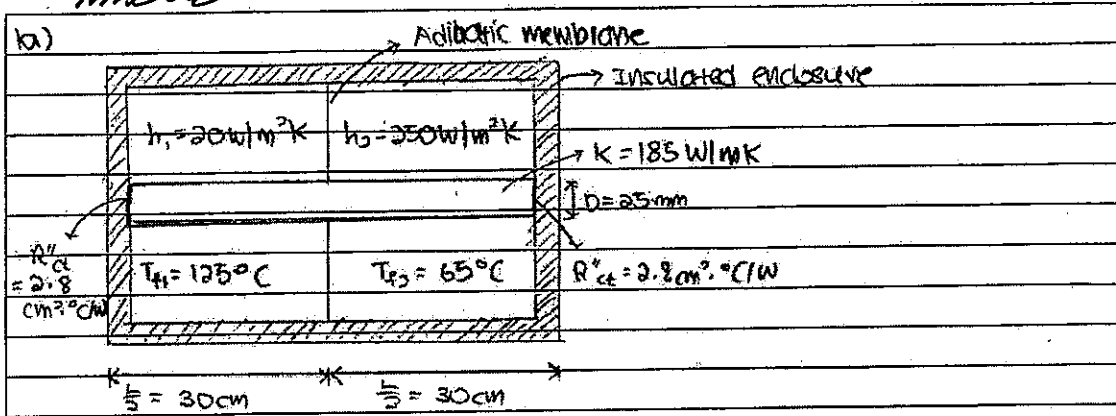 (a)
Adibatic membrane
Insulated enclosure
h₁=20W/m²K h₂=250W/m²K
K=185W/mK
D=25mm
R"ct = 2.8 cm²·°C/W
T_f1=125°C T_f2=65°C R"ct=2.8cm²·°C/W
L/2 = 30cm L/2 = 30cm